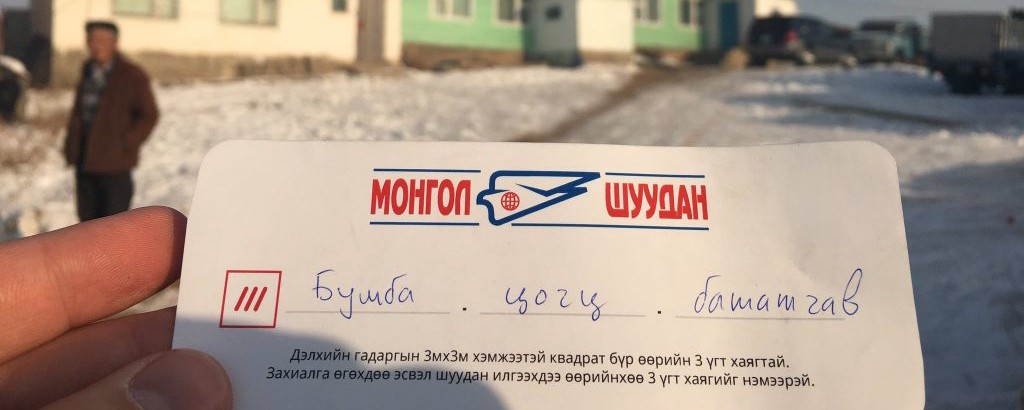 МОНГОЛ ШУУДАН
Бумба . цогц . бататгав
Дэлхийн гадаргын 3мх3м хэмжээтэй квадрат бүр өөрийн 3 үгт хаягтай.
Захиалга өгөхдөө эсвэл шуудан илгээхдээ өөрийнхөө 3 үгт хаягийг нэмээрэй.